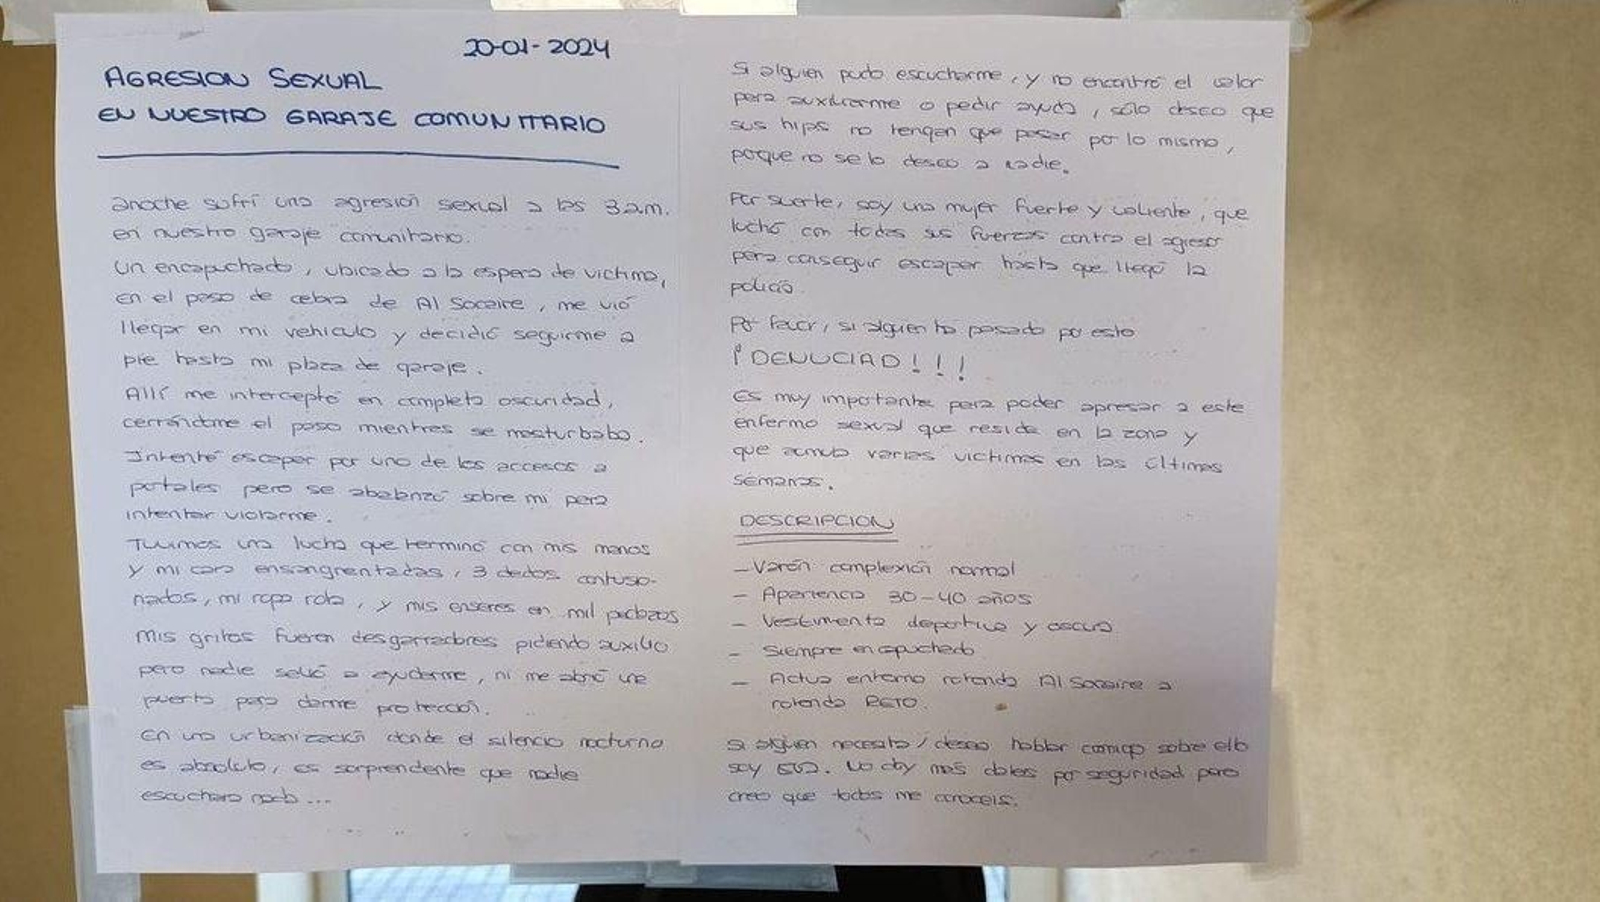 20-01-2024
AGRESION SEXUAL
EN NUESTRO GARAJE COMUNITARIO
Anoche sufrí una agresión sexual a las 3 a.m.
en nuestro garaje comunitario.
Un encapuchado, ubicado a la espera de victima,
en el paso de cebra de Al Socaire, me vió
llegar en mi vehiculo y decidió seguirme a
pie hasta mi plaza de garaje.
Allí me interceptó en completa oscuridad,
cerrándome el paso mientras se masturbaba.
Intenté escapar por uno de los accesos a
portales pero se abalanzó sobre mi para
intentar violarme.
Tuvimos una lucha que terminó con mis manos
y mi cara ensangrentadas, 3 dedos contusio-
nados, mi ropa rota, y mis enseres en mil pedazos
Mis gritos fueron desgarradores pidiendo auxilio
pero nadie salió a ayudarme, ni me abrió una
puerta para darme protección.
En una urbanización donde el silencio nocturno
es absoluto, es sorprendente que nadie
escuchara nada...
Si alguien pudo escucharme, y no encontró el valor
para auxiliarme o pedir ayuda, sólo deseo que
sus hijas no tengan que pasar por lo mismo,
porque no se lo deseo a nadie.
Por suerte, soy una mujer fuerte y valiente, que
luchó con todas sus fuerzas contra el agresor
para conseguir escapar hasta que llegó la
policía.
Por favor, si alguien ha pasado por esto
¡DENUCIAD!!!
Es muy importante para poder apresar a este
enfermo sexual que reside en la zona y
que acumula varias victimas en las últimas
semanas.
DESCRIPCION
- Varón complexión normal
- Apariencia 30-40 años
- Vestimenta deportiva y oscura
- Siempre encapuchado
- Actua entorno rotonda Al Socaire a
rotonda RETO.
Si alguien necesita/desea hablar conmigo sobre ello
soy Eva. No doy más datos por seguridad pero
creo que todos me conoceis.